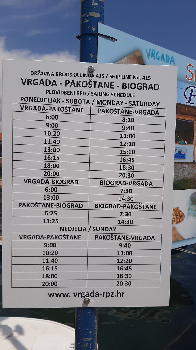 VRGADA
DRŽAVNA BRODSKA LINIJA / SHIP LINE Nr. 415
VRGADA - PAKOŠTANE - BIOGRAD
PLOVIDBENI RED / SAILING SCHEDULE
PONEDJELJAK - SUBOTA / MONDAY - SATURDAY
VRGADA-PAKOŠTANE PAKOŠTANE-VRGADA
6:00
9:00 9:40
10:20
11:40
13:00
16:15 16:45
18:00
20:00 20:30
VRGADA-BIOGRAD BIOGRAD-VRGADA
6:00 7:30
13:00 14:30
PAKOŠTANE-BIOGRAD BIOGRAD-PAKOŠTANE
6:25 7:30
13:25 14:30
NEDJELJA / SUNDAY
VRGADA-PAKOŠTANE PAKOŠTANE-VRGADA
9:00 9:40
10:20 11:00
11:40 12:20
16:15 16:45
18:00 18:30
20:00 20:30
www.vrgada-rpz.hr